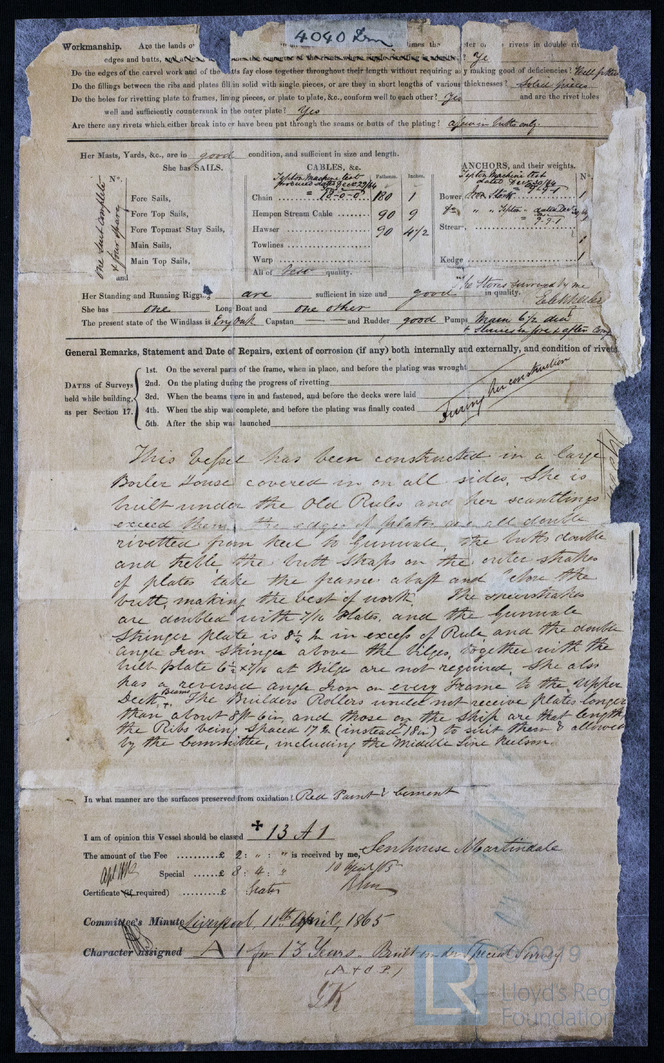 4040 Irn
Workmanship. Are the lands o
rivets in double riv
edges and butts,
Do the edges of the carvel work and of the butts fay close together throughout their length without requiring any making good of deficiencies? Well fitted
Do the fillings between the ribs and plates fill in solid with single pieces, or are they in short lengths of various thicknesses? Solid pieces
Do the holes for rivetting plate to frames, lining pieces, or plate to plate, &c., conform well to each other? Yes and are the rivet holes
well and sufficiently countersunk in the outer plate? Yes
Are there any rivets which either break into or have been put through the seams or butts of the plating? a few in butts only
Her Masts, Yards, &c., are in good condition, and sufficient in size and length.
She has SAILS. CABLES, &c. Fathoms. Inches. ANCHORS, and their weights. Nº.
Nº.
one suit complete & four spare
Fore Sails,
Fore Top Sails,
Fore Topmast Stay Sails,
Main Sails,
Main Top Sails,
and
Tipton Machine test
Chain 180 1
Hempen Stream Cable 90 9
Hawser 90 4½
Towlines
Warp
All of quality.
Tipton Machine test
Bower
Stream
Kedge 1
The Stores surveyed by me
Her Standing and Running Rigging are sufficient in size and good in quality.
She has one Long Boat and one other
The present state of the Windlass is Capstan and Rudder good Pumps Main 6½ dia
General Remarks, Statement and Date of Repairs, extent of corrosion (if any) both internally and externally, and condition of rivets
DATES of Surveys held while building, as per Section 17.
1st. On the several parts of the frame, when in place, and before the plating was wrought
2nd. On the plating during the progress of rivetting
3rd. When the beams were in and fastened, and before the decks were laid
4th. When the ship was complete, and before the plating was finally coated
5th. After the ship was launched
During her construction
This Vessel has been constructed in a large
Boiler House covered in on all sides, She is
built under the Old Rules and her scantlings
exceed them, the edges of plates are all double
rivetted from Keel to Gunwale, the butts double
and treble, the butt straps on the outer strakes
of plates take the frames abaft and before the
butt, making the best of work. The sheerstrakes
are doubled with 7/16 Plates, and the Gunwale
Stringer plate is 8¼ In in excess of Rule, and the double
angle Iron Stringer above the bilges, together with the
bulb plate 6½ x 7/16 at Bilge are not required. She also
has a reversed angle Iron on every Frame to the Upper
Deck Beams. The Builders Rollers would not receive plates longer
than about 8ft 6in, and those on the Ship are that length
the Ribs being spaced 17 in (instead 18in) to suit them & allowed
by the Committee, including the Middle Line Keelson.
In what manner are the surfaces preserved from oxidation? Red Paint & Cement
I am of opinion this Vessel should be classed ✠ 13 A 1
The amount of the Fee ..........£ 2 : " : " is received by me, Senhouse Martindale
Special ....£ 8 : 4 : "
Certificate (if required) ....£ : Gratis
Committee's Minute Liverpool, 11th April, 1865
Character assigned A 1 for 13 Years. Built under Special Survey
(A & C P)
© 2019
LR
Lloyd's Reg
Foundation